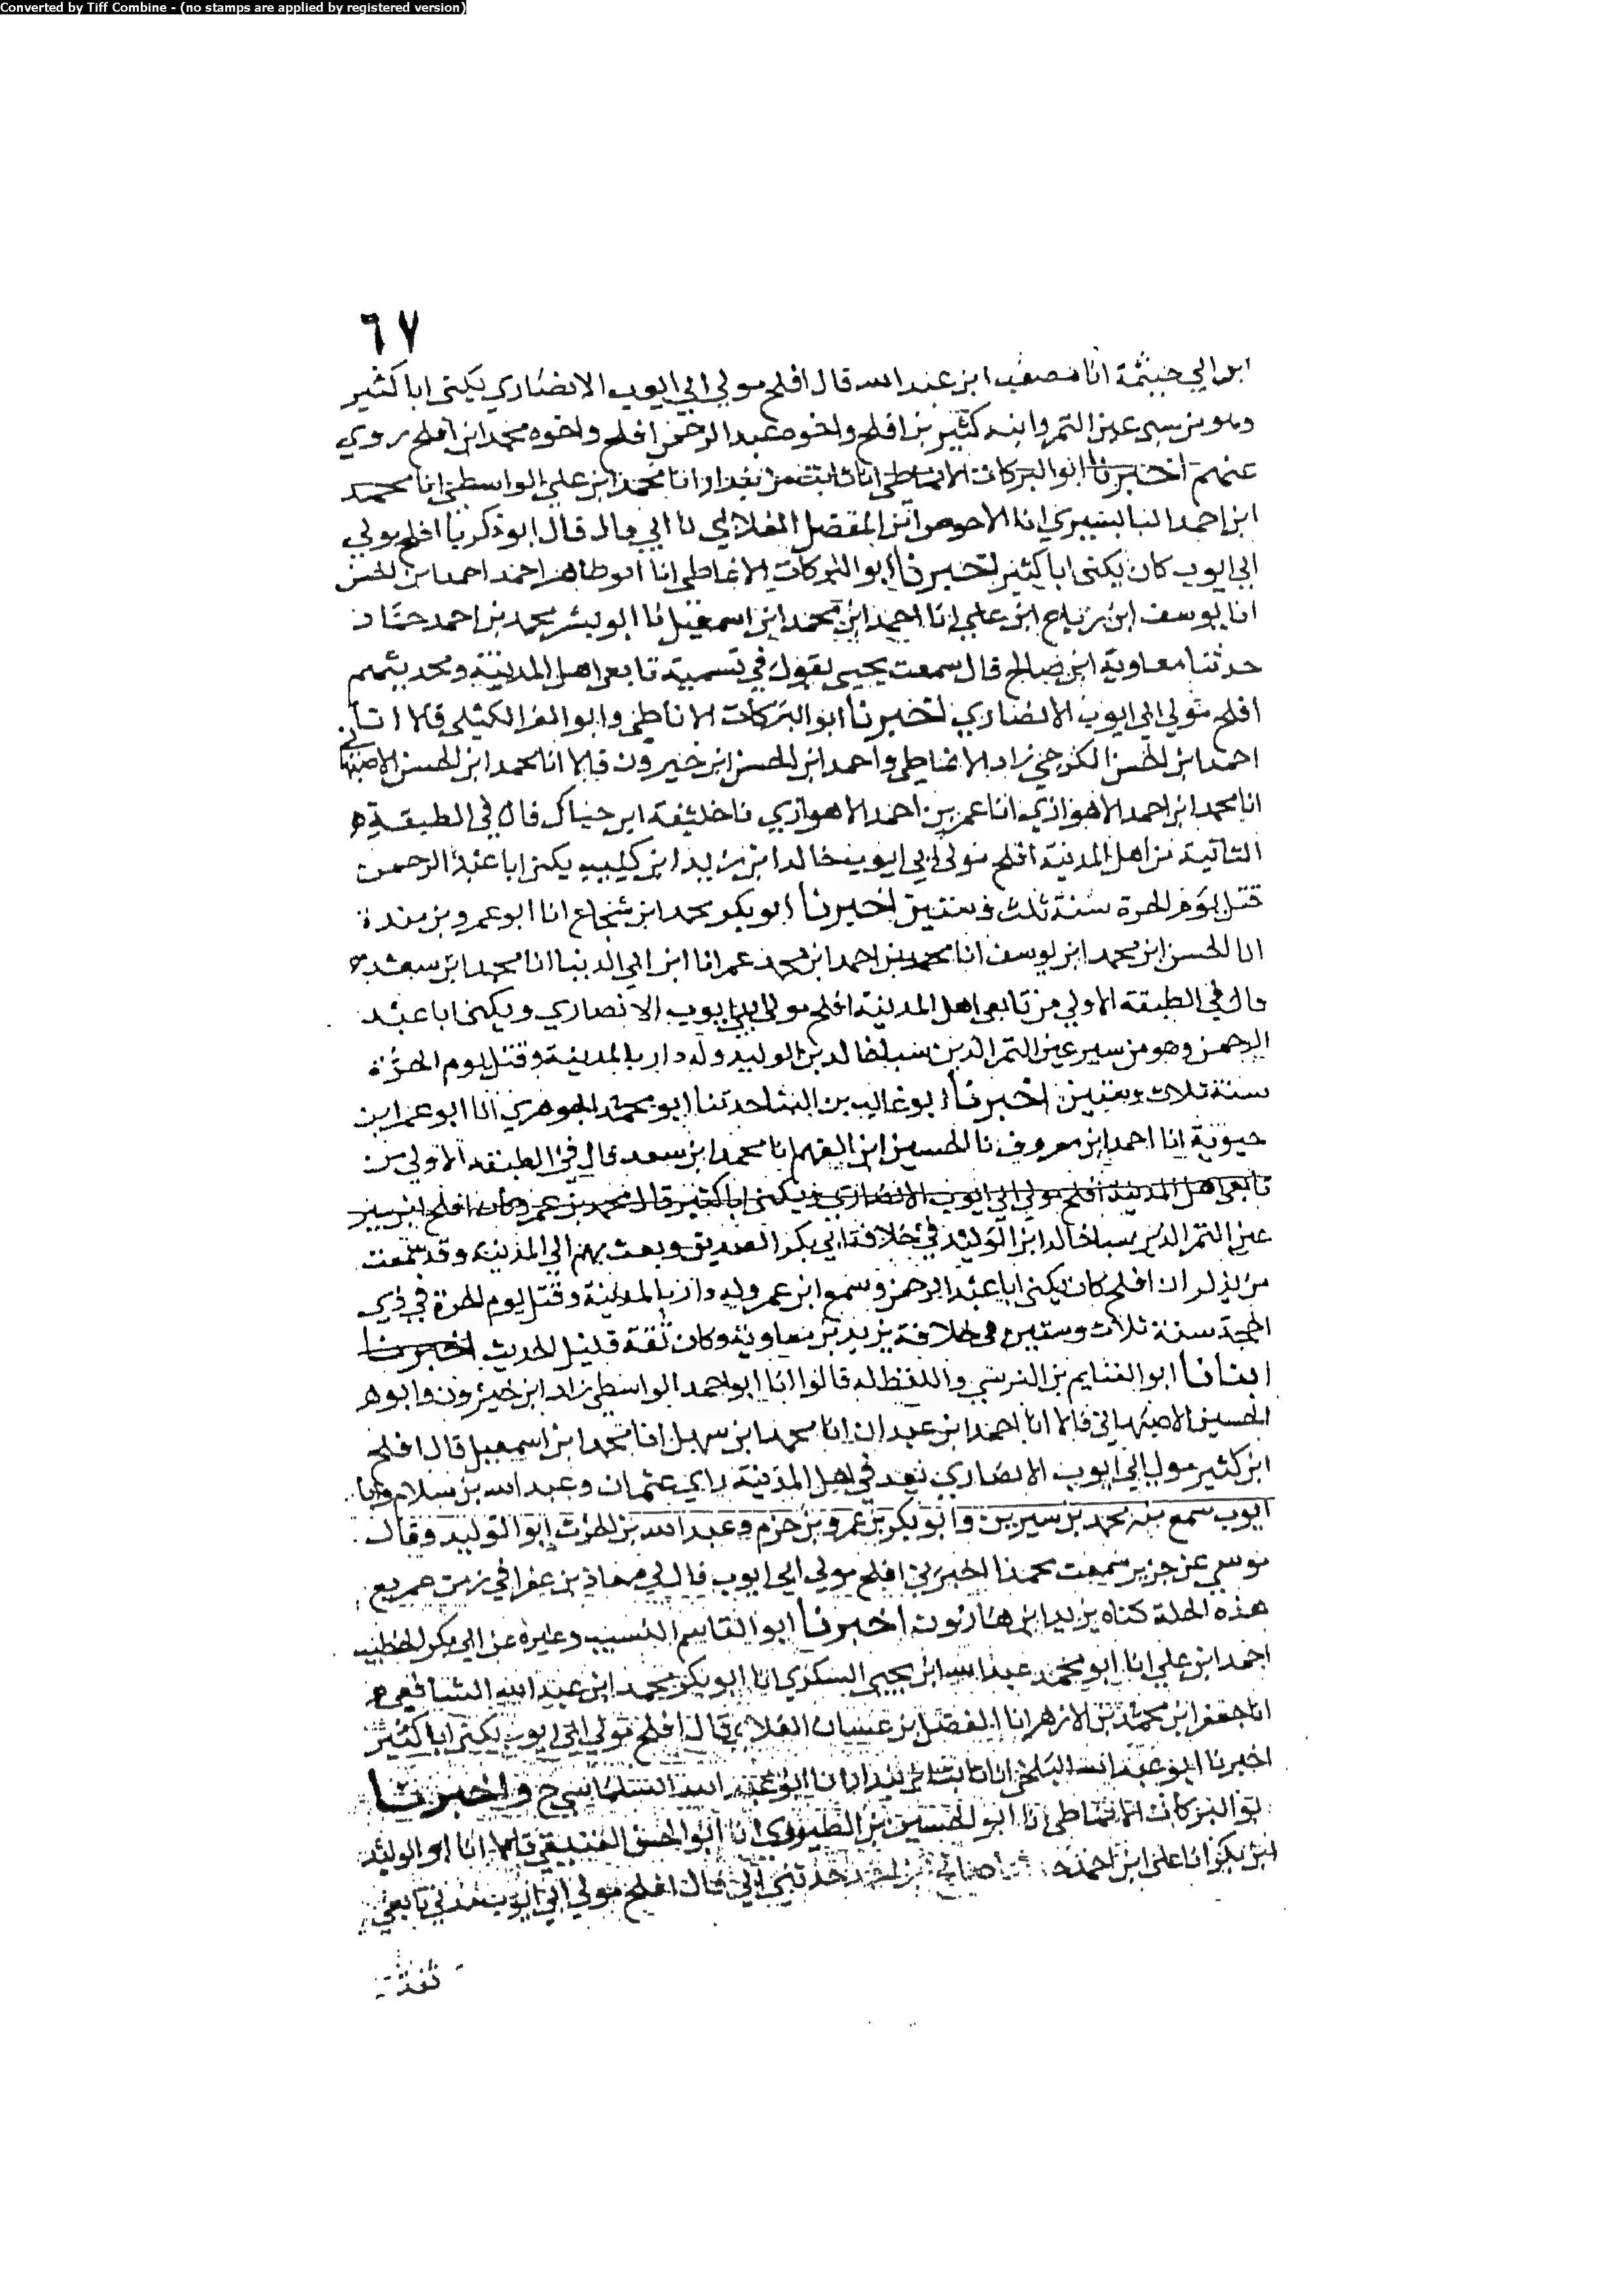 Converted by Tiff Combine - (no stamps are applied by registered version)
٦٧
ابن ابي خيثمة انا مصعب ابن عبد الله قال افلح مولي ابي ايوب الانصاري يكنى ابا كثير
وهو من سبي عين التمر وابنه كثير بن افلح واخوه عبد الرحمن افلح واخوه محمد ابن افلح روي
عنهم اخبرنا ابو البركات الانماطي انا ثابت من بندار انا محمد ابن علي الواسطي انا محمد
ابن احمد البابسيري انا الاحوص ابن المفضل الغلابي نا ابي قال قال ابو زكريا افلح مولي
ابي ايوب كان يكنى ابا كثير اخبرنا ابو البركات الانماطي انا ابو طاهر احمد احمد ابن الحسن
انا يوسف ابن رباح ابن علي انا احمد ابن محمد ابن اسمعيل نا ابو بشر محمد بن احمد حماد
حدثنا معاوية ابن صالح قال سمعت يحيى يقول في تسمية تابعي اهل المدينة ومحدثيهم
افلح مولي ابي ايوب الانصاري اخبرنا ابو البركات الاناطي وابو العز الكيلي قالا انا
احمد ابن الحسن الكرجي زاد الانماطي واحمد ابن الحسن ابن خيرون قالا انا محمد ابن الحسن الاصبهاني
انا محمد ابن احمد الاهوازي انا عمر بن احمد الاهوازي نا خليفة ابن خياط قال في الطبقة
الثانية من اهل المدينة افلح مولي ابي ايوب خالد ابن زيد ابن كليب يكنى ابا عبد الرحمن
قتل يوم الحرة سنة ثلث وستين اخبرنا ابو بكر محمد ابن شجاع انا ابو عمرو بن مندة
انا الحسن ابن محمد ابن يوسف انا محمد بن احمد ابن محمد عمر انا ابن ابي الدنيا انا محمد ابن سعد
قال في الطبقة الاولي من تابعي اهل المدينة افلح مولى ابي ايوب الانصاري ويكنى ابا عبد
الرحمن وهو من سبي عين التمر الذين سبا خالد بن الوليد وله دار بالمدينة وقتل يوم الحرة
سنة ثلاث وستين اخبرنا ابو غالب بن البنا حدثنا ابو محمد الجوهري انا ابو عمر ابن
حيوية انا احمد ابن معروف نا الحسين ابن الفهم انا محمد ابن سعد قال في الطبقة الاولي من
تابعي اهل المدينة افلح مولي ابي ايوب الانصاري ويكنى ابا كثير قال محمد بن عمر وكان افلح من سبي
عين التمر الذين سبا خالد ابن الوليد في خلافة ابي بكر الصديق وبعث بهم الي المدينة وقد سمعت
من يذكر ان افلح كان يكنى ابا عبد الرحمن وسمع ابن عمر وله دار بالمدينة وقتل يوم الحرة في ذي
الحجة سنة ثلاث وستين في خلافة يزيد بن معاوية وكان ثقة قليل الحديث اخبرنا
انبانا ابو الغنايم بن النرسي واللفظ له قالوا انا ابو احمد الواسطي زاد ابن خيرون وابو
الحسين الاصبهاني قالا انا احمد ابن عبدان انا محمد ابن سهل انا محمد ابن اسمعيل قال افلح
ابن كثير مولي ابي ايوب الانصاري يعد في اهل المدينة راي عثمان وعبد الله بن سلام وابا
ايوب سمع منه محمد بن سيرين وابو بكر بن عمرو بن حزم وعبد الله بن الحرث ابو الوليد وقال
موسي عن جرير سمعت محمدا اخبرني افلح مولي ابي ايوب قال لي معاذ بن عفرا في زمن عمر بع
هذه الحلة كناه يزيد ابن هارون اخبرنا ابو القاسم النسيب وغيره عن ابي بكر الخطيب
احمد ابن علي انا ابو محمد عبد الله ابن يحيى السكري انا ابو بكر محمد ابن عبد الله الشافعي
انا جعفر ابن محمد بن الازهر انا المفضل بن غسان الغلابي قال افلح مولي ابي ايوب يكنى ابا كثير
اخبرنا ابو عبد الله البلخي انا ثابت ابن بندار انا ابو عبد الله السلماسي ح واخبرنا
ابو البركات الانماطي انا ابو الحسين بن الطيوري انا ابو الحسن العتيقي قالا انا ابو الوليد
ابن بكر انا علي ابن احمد صالح بن احمد حدثني ابي قال افلح مولي ابي ايوب مدني تابعي
ثقة